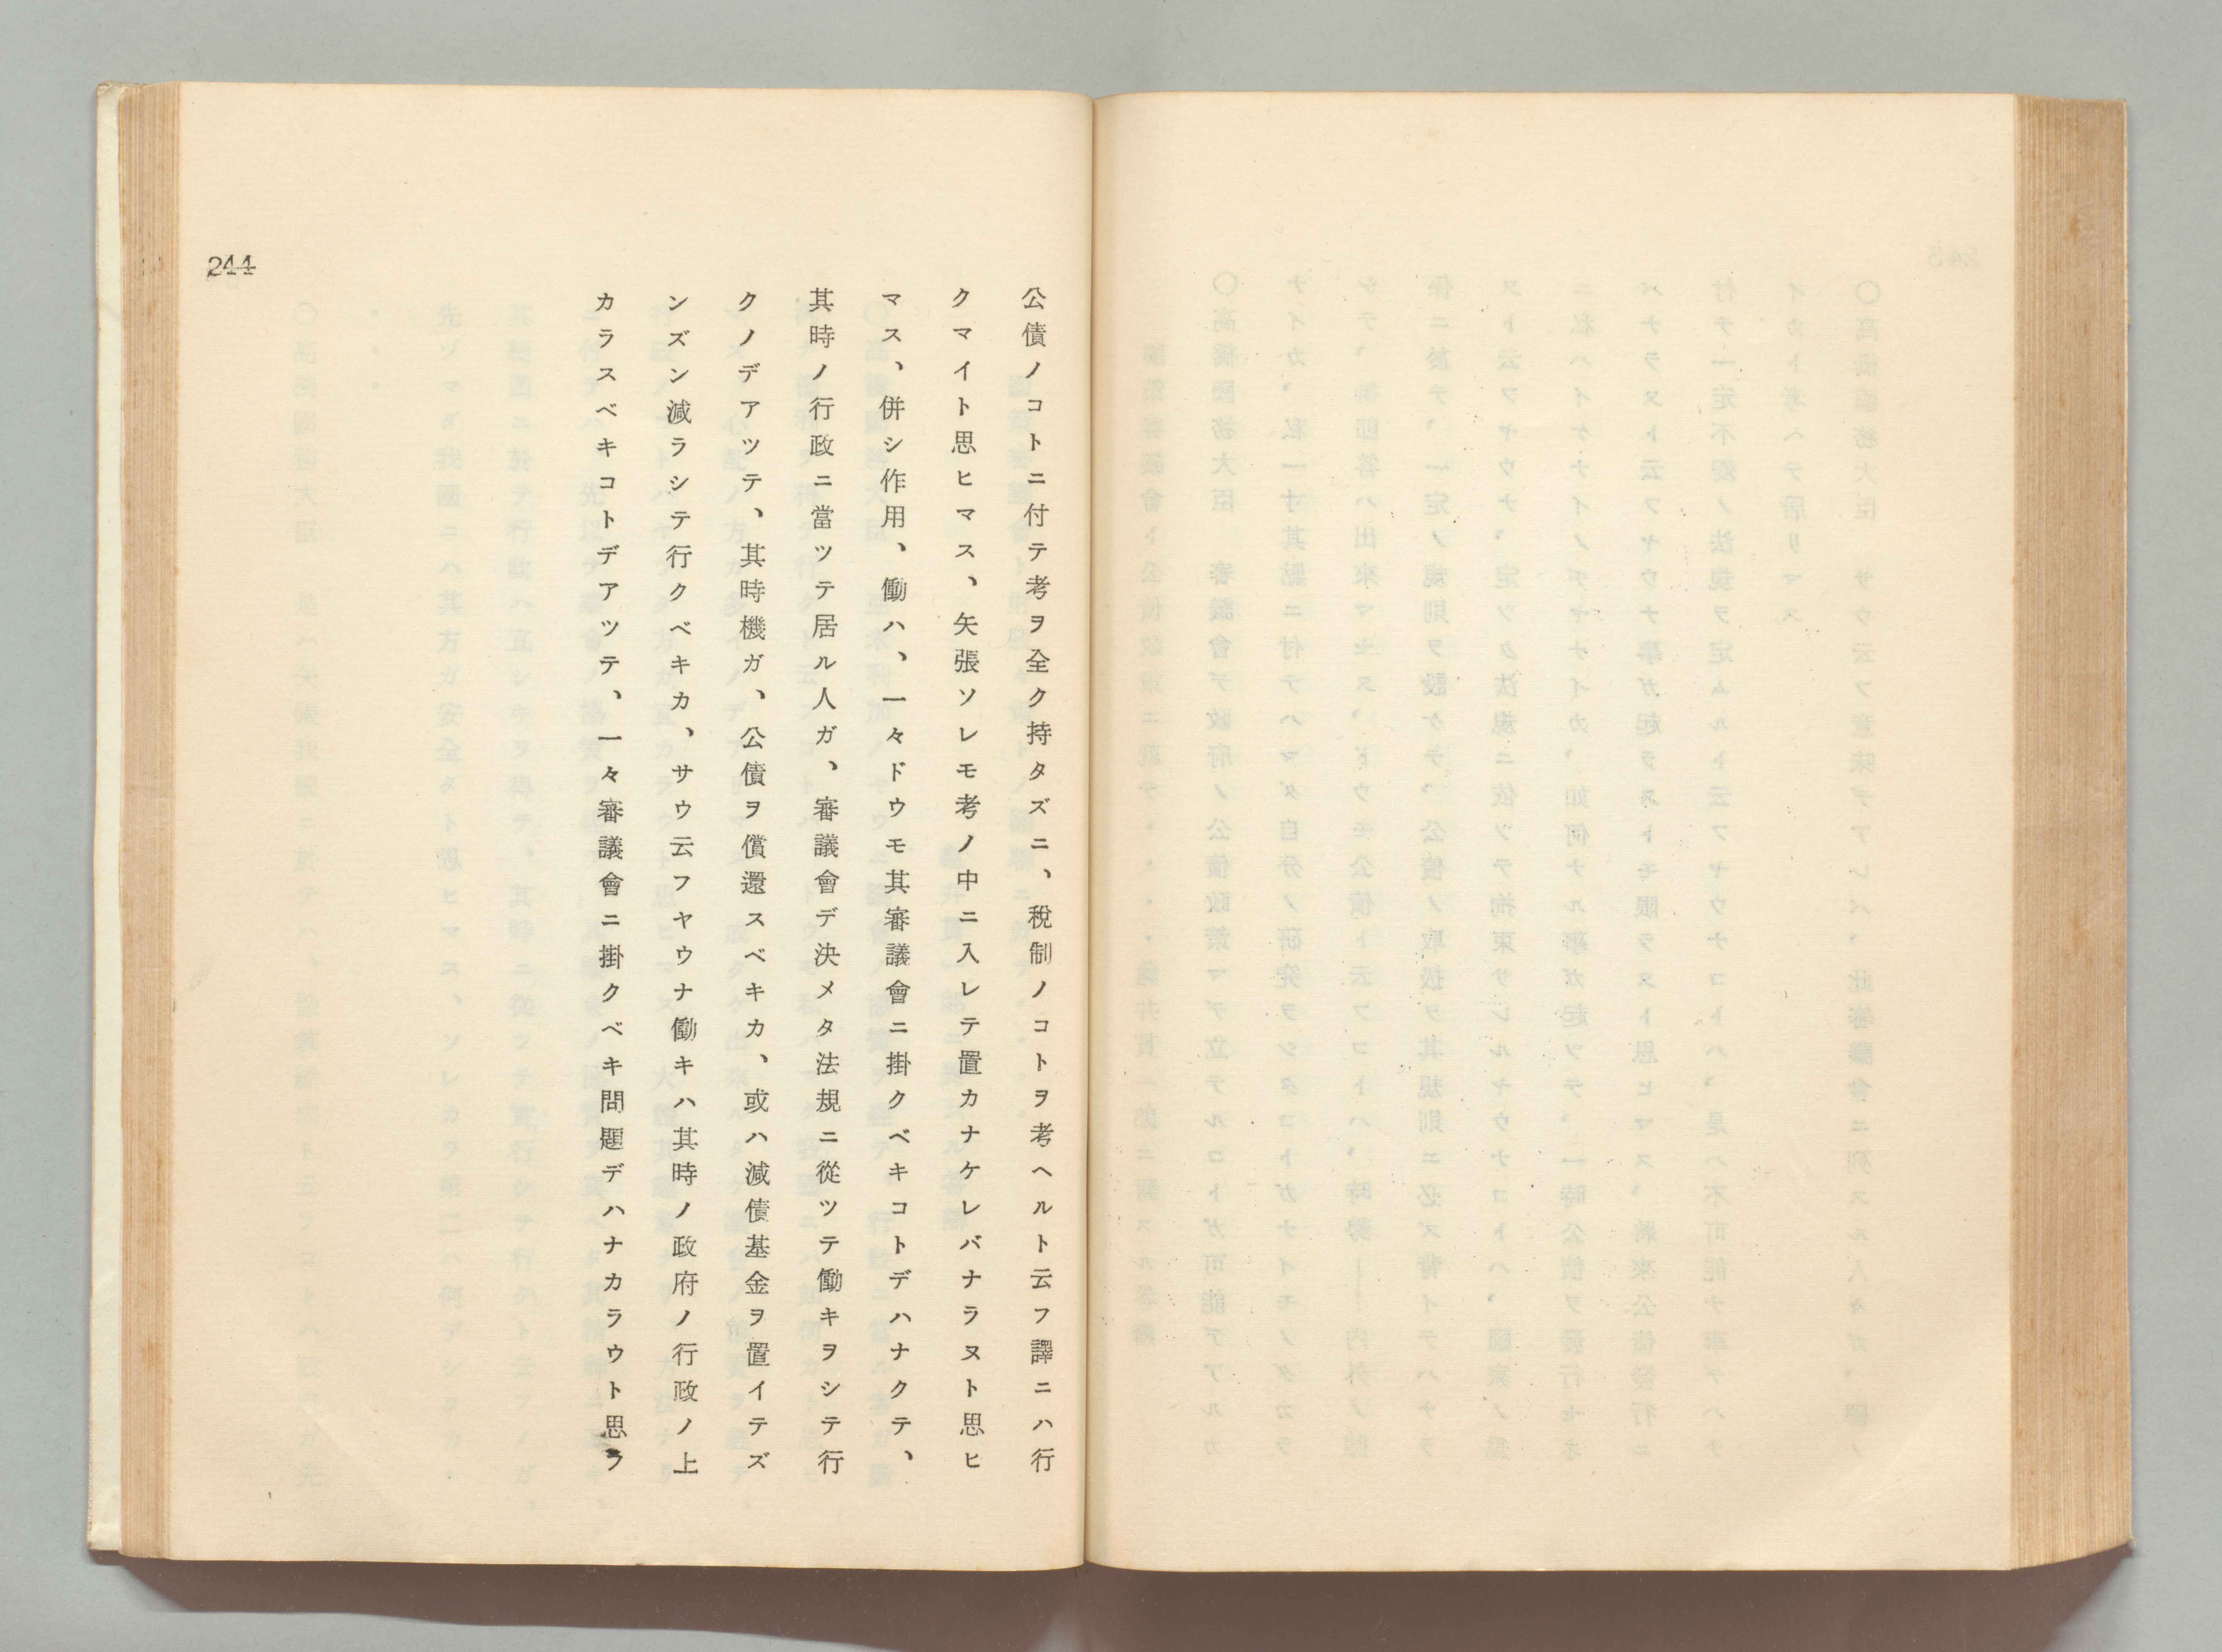 公債ノコトニ付テ考ヲ全ク持タズニ、稅制ノコトヲ考ヘルト云フ譯ニハ行
クマイト思ヒマス、矢張ソレモ考ノ中ニ入レテ置カナケレバナラヌト思ヒ
マス、併シ作用、働ハ、一々ドウモ其審議會ニ掛クベキコトデハナクテ、
其時ノ行政ニ當ツテ居ル人ガ、審議會デ決メタ法規ニ從ツテ働キヲシテ行
クノデアツテ、其時機ガ、公債ヲ償還スベキカ、或ハ減債基金ヲ置イテズ
ンズン減ラシテ行クベキカ、サウ云フヤウナ働キハ其時ノ政府ノ行政ノ上
カラスベキコトデアツテ、一々審議會ニ掛クベキ問題デハナカラウト思ラ
244